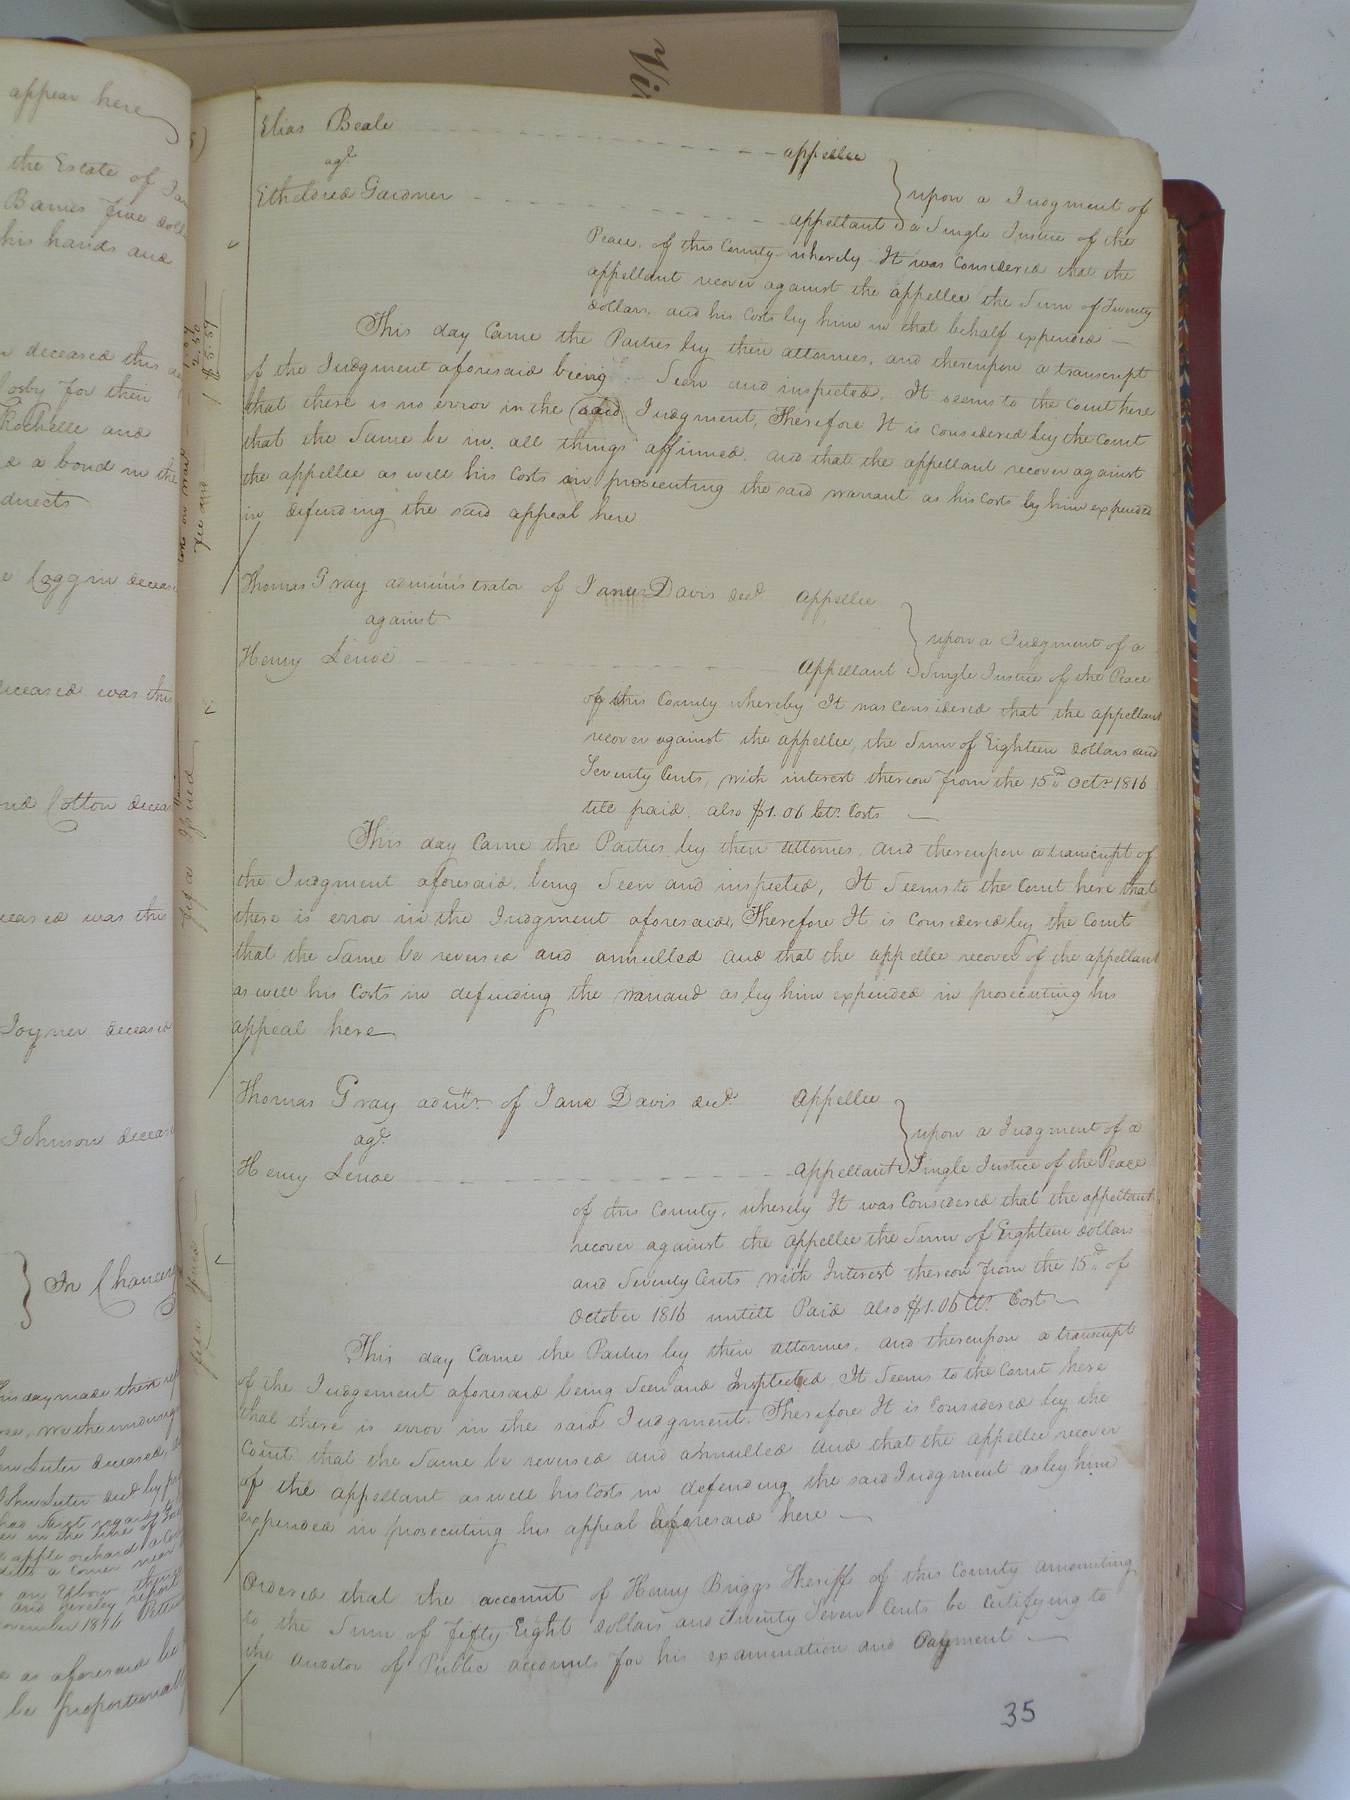 appear here
the Estate of Jam
Barnes five doll
his hands and
deceased this
for their
Rochelle and
a bond in the
directs
Loggin deceas
deceased was this
Cotton decea
deceased was this
Joyner deceased
Johnson deceas
In Chancery
this day made their rep
we, the underig
Luter deceased,
John Luter decd by
apple orchard a
a corner near
and hereby report
November 1816
as aforesaid be
be proportional
Vi
Elias Beale appellee
agt
Etheldred Gardner appellant
upon a Judgment of
a Single Justice of the
Peace, of this County whereby It was Considered that the
appellant recover against the appellee the Sum of Twenty
dollars, and his Costs by him in that behalf expended
This day Came the Parties by their attornies, and thereupon a transcript
of the Judgment aforesaid being Seen and inspected, It seems to the Court here
that there is no error in the (said) Judgment, Therefore It is considered by the Court
that the Same be in all things affirmed, and that the appellant recover against
the appellee as well his Costs in prosecuting the said warrant as his Costs by him expended
in defending the said appeal here
Thomas Gray administrator of Jane Davis decd appellee
against
Henry Lenoe appellant
upon a Judgment of a
Single Justice of the Peace
of this County whereby It was Considered that the appellant
recover against the appellee, the Sum of Eighteen dollars and
Seventy Cents, with interest thereon from the 15th Octr 1816
till paid, also $1.06 Cts. Costs
This day Came the Parties by their attornies, and thereupon a transcript of
the Judgment aforesaid, being Seen and inspected, It Seems to the Court here that
there is error in the Judgment aforesaid, Therefore It is Considered by the Court
that the Same be reversed and annulled and that the appellee recover of the appellant
as well his Costs in defending the warrand as by him expended in prosecuting his
appeal here
Thomas Gray admr. of Jane Davis decd. Appellee
agt.
Henry Lenoe appellant
upon a Judgment of a
Single Justice of the Peace
of this County, whereby It was Considered that the appellant
recover against the appellee the Sum of Eighteen dollars
and Seventy Cents with Interest thereon from the 15th of
October 1816 untill Paid also $1.06 Cts. Costs
This day Came the Parties by their attornies, and thereupon a transcript
of the Judgement aforesaid being Seen and Inspected, It Seems to the Court here
that there is error in the said Judgment. Therefore It is Considered by the
Court that the Same be reversed and annulled and that the appellee recover
of the appellant as well his Costs in defending the said Judgment as by him
expended in prosecuting his appeal aforesaid here
Ordered that the account of Henry Briggs Sheriff of this County amounting
to the Sum of fifty Eight dollars and twenty Seven Cents be Certifying to
the auditor of Public accounts for his examination and Payment
35